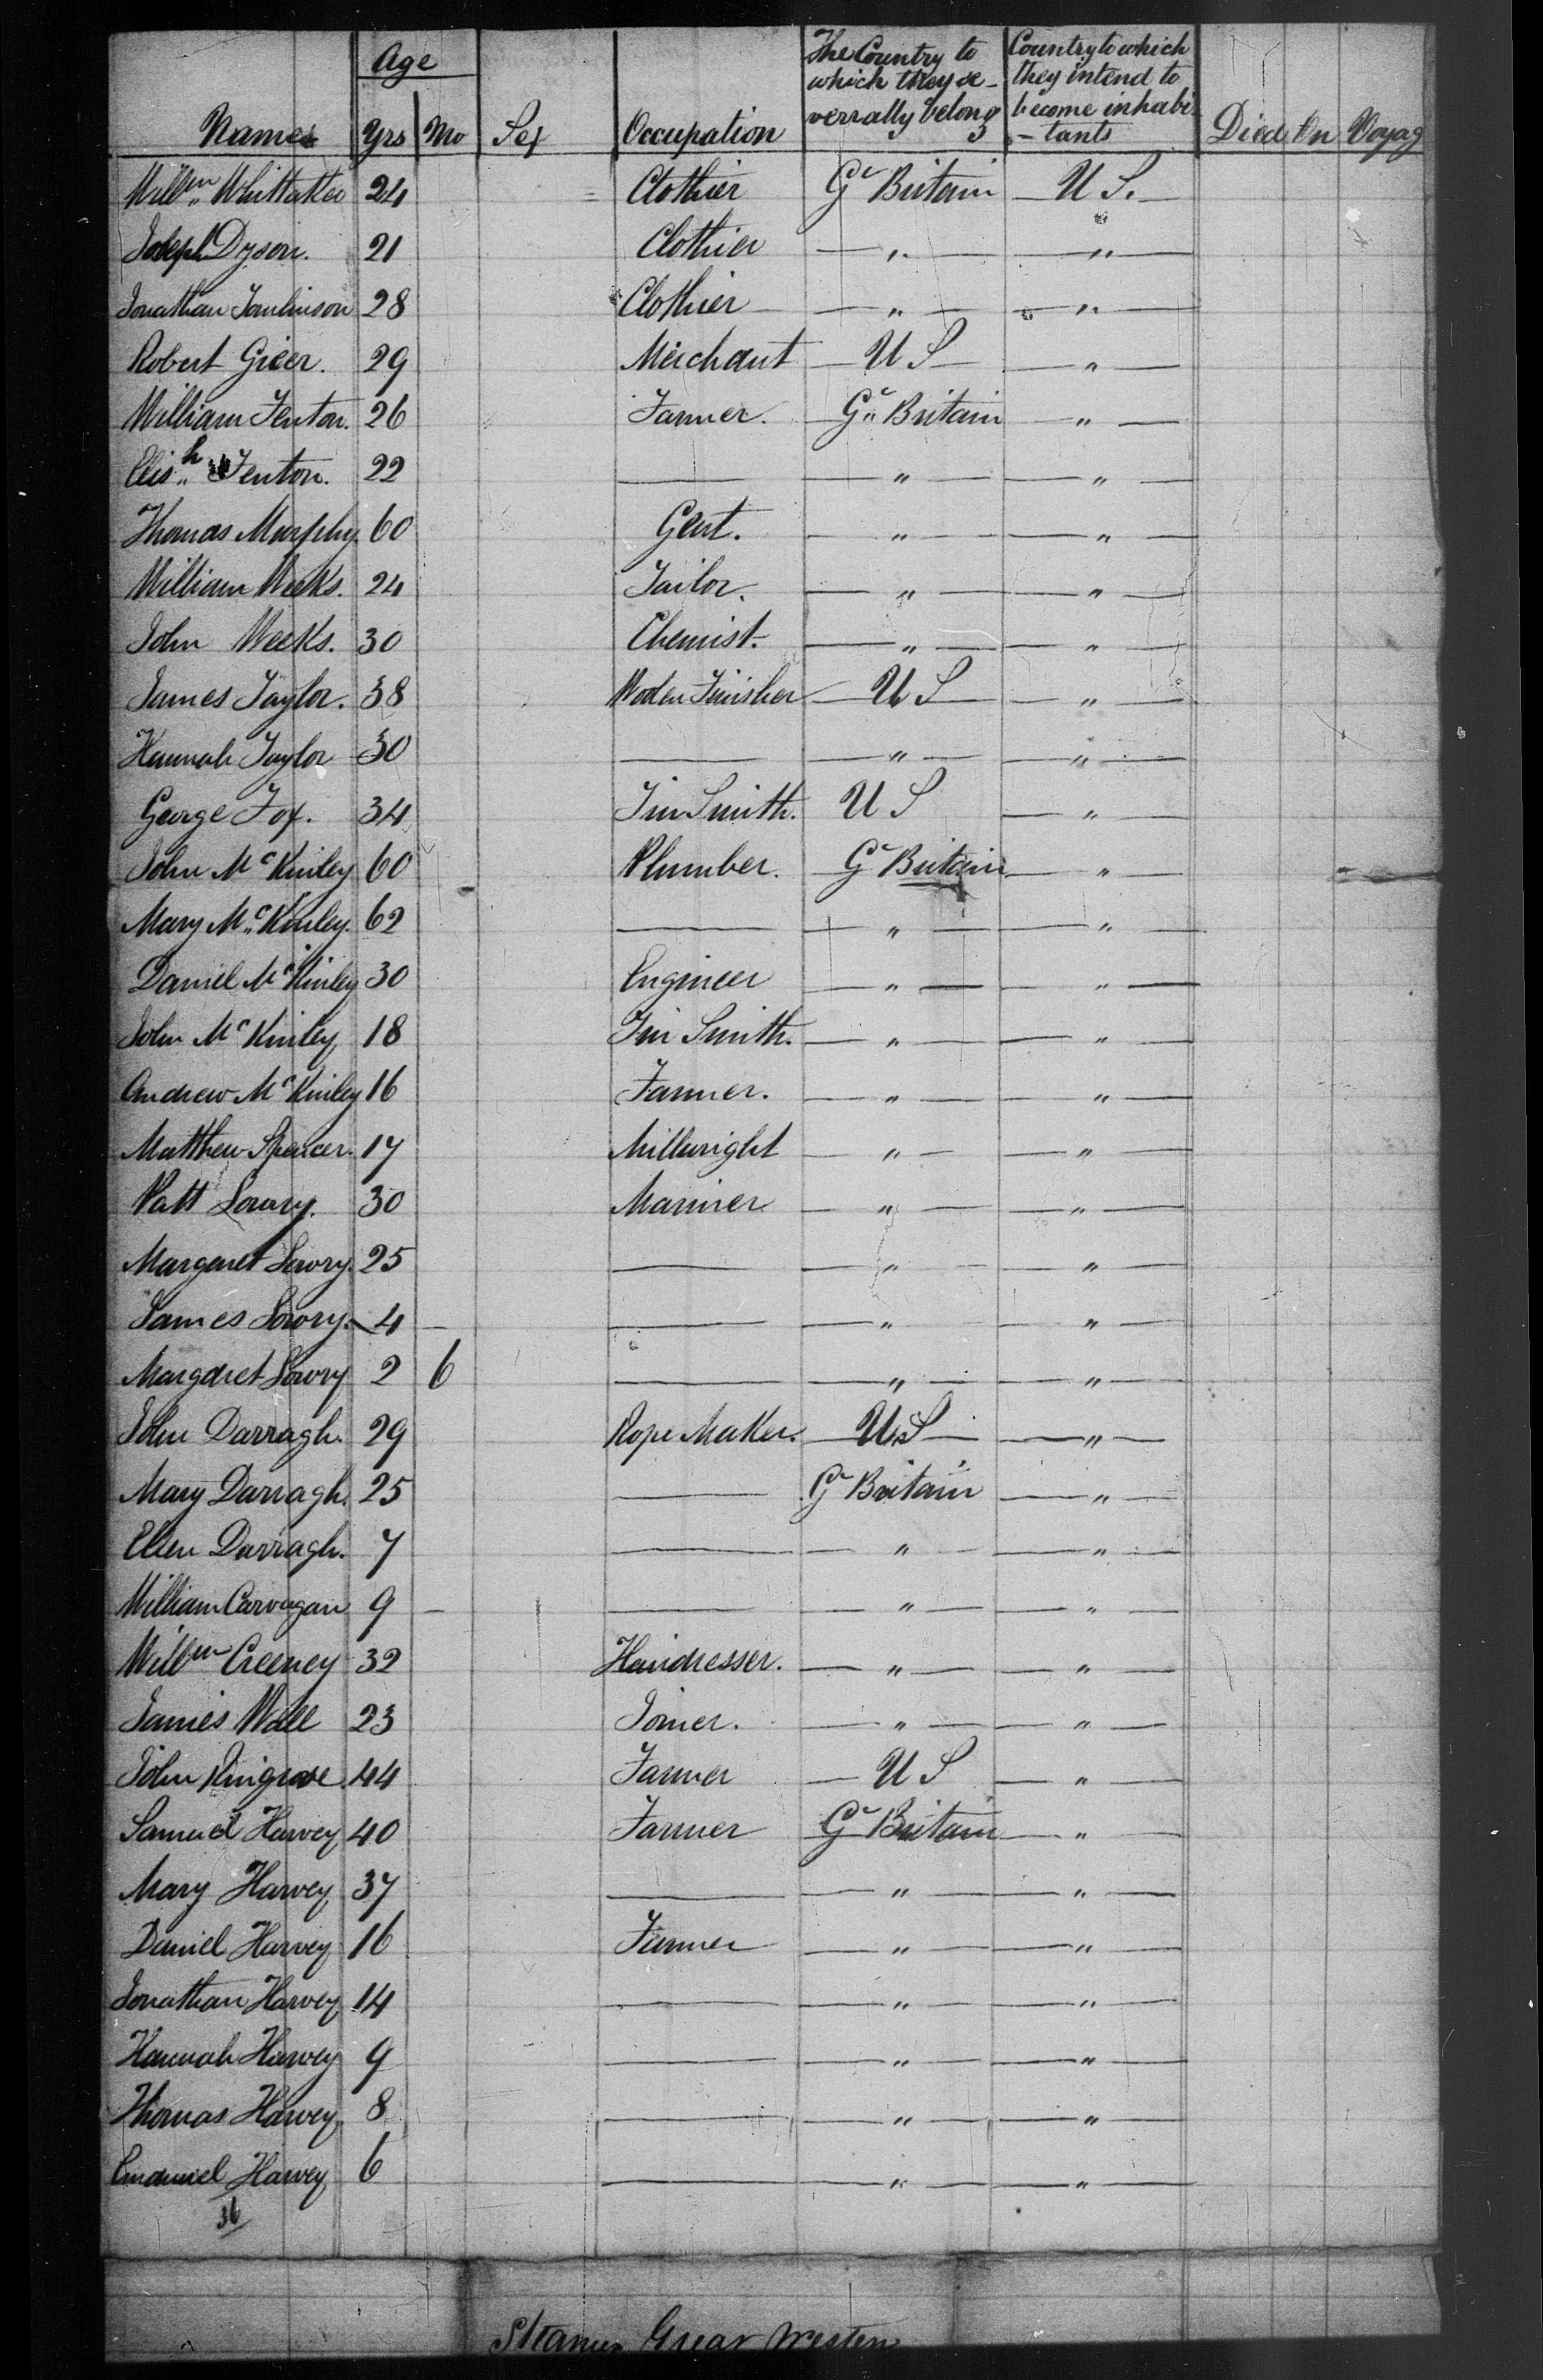 Age
The Country to which they se-verrally belong
Country to which they intend to become inhabi-tants
Names Yrs Mo Sex Occupation Died On Voyag
Willm Whittaker 24 Clothier Gr Britain — U S. —
Joseph Dyson. 21 Clothier — " — — " —
Jonathan Tomlinson 28 Clothier — " — — " —
Robert Grier. 29 Merchant — U S — — " —
William Fenton. 26 Farmer. — Gr Britain — " —
Elish Fenton. 22 — — " — — " —
Thomas Murphy. 60 Gent. — " — — " —
William Weeks. 24 Tailor. — " — — " —
John Weeks. 30 Chemist. — " — — " —
James Taylor. 38 Finisher — U S — — " —
Hannah Taylor 30 — — " — — " —
George Fox. 34 Tin Smith. U S — " —
John McKinley 60 Plumber. Gr Britain — " —
Mary McKinley. 62 — — " — — " —
Daniel McKinley 30 Engineer — " — — " —
John McKinley 18 Tin Smith. — " — — " —
Andrew McKinley 16 Farmer. — " — — " —
Matthew Spencer. 17 Millwright — " — — " —
Patt Lowry. 30 Mariner — " — — " —
Margaret Lowry. 25 — — " — — " —
James Lowry. 4 — — — " — — " —
Margaret Lowry 2 6 — — " — — " —
John Darragh. 29 Rope Maker. — U S — — " —
Mary Darragh. 25 — Gr Britain — " —
Ellen Darragh. 7 — — " — — " —
William Carvagan 9 — — — " — — " —
Willm Creeney 32 Hairdresser. — " — — " —
James Wall 23 Joiner. — " — — " —
John Ringrose 44 Farmer — U S — " —
Samuel Harvey 40 Farmer Gr Britain — " —
Mary Harvey 37 — — " — — " —
Daniel Harvey 16 Farmer — " — — " —
Jonathan Harvey 14 — — " — — " —
Hannah Harvey 9 — — " — — " —
Thomas Harvey 8 — — " — — " —
Emanuel Harvey 6 — — " — — " —
36
Steamer Great Western